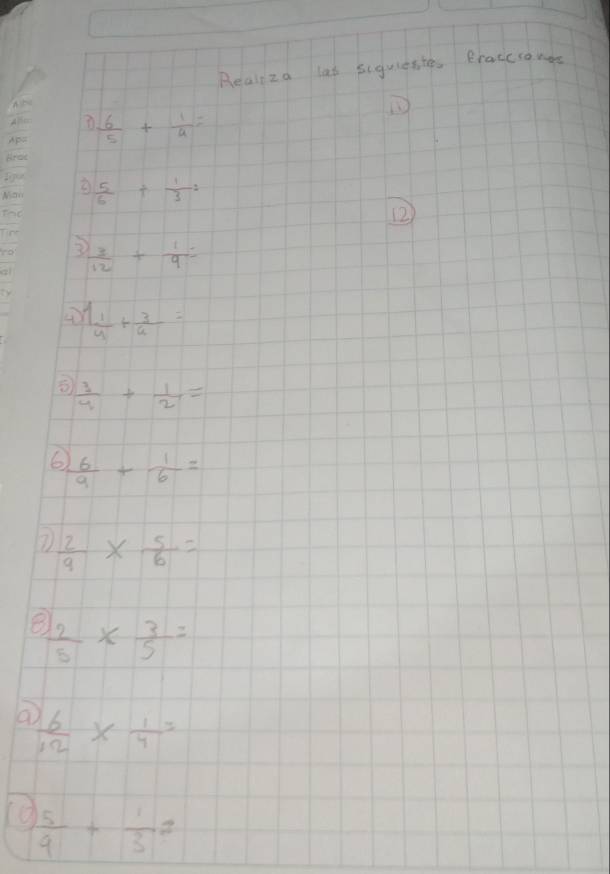 Realiza las siguientes fracciones
1) 6/5 + 1/4 =
2) 5/6 + 1/3 =
3) 3/12 + 1/9 =
4) 1 1/4 + 3/4 =
5) 3/4 + 1/2 =
6) 6/9 + 1/6 =
7) 2/9 × 5/6 =
8) 2/5 × 3/5 =
9) 6/12 × 1/4 =
10) 5/9 + 1/3 =
11)
12)